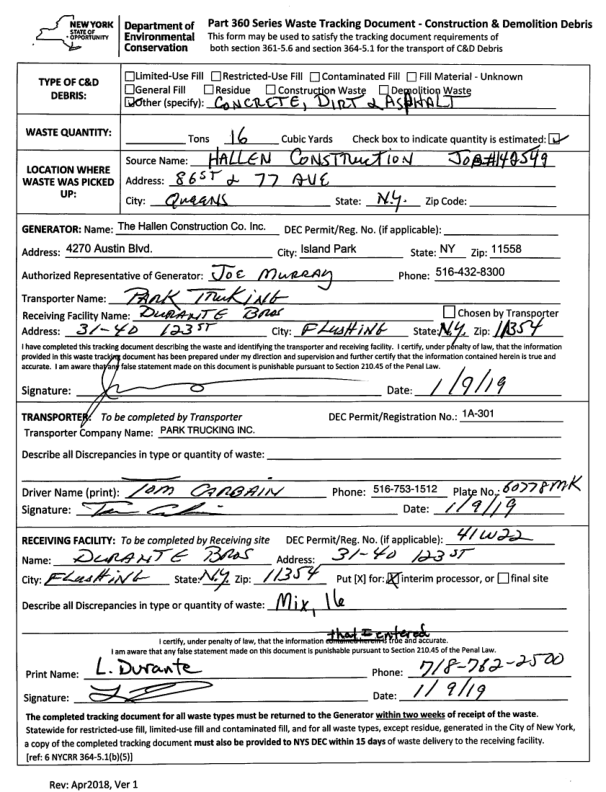 NEW YORK STATE OF OPPORTUNITY
Department of Environmental Conservation
Part 360 Series Waste Tracking Document - Construction & Demolition Debris
This form may be used to satisfy the tracking document requirements of
both section 361-5.6 and section 364-5.1 for the transport of C&D Debris
TYPE OF C&D DEBRIS:
Limited-Use Fill Restricted-Use Fill Contaminated Fill Fill Material - Unknown
General Fill Residue Construction Waste Demolition Waste
Other (specify): CONCRETE, DIRT & ASPHALT
WASTE QUANTITY: Tons 16 Cubic Yards Check box to indicate quantity is estimated:
LOCATION WHERE WASTE WAS PICKED UP:
Source Name: HALLEN CONSTRUCTION JOB#148549
Address: 86ST & 77 AVE
City: QUEENS State: N.Y. Zip Code:
GENERATOR: Name: The Hallen Construction Co. Inc. DEC Permit/Reg. No. (if applicable):
Address: 4270 Austin Blvd. City: Island Park State: NY Zip: 11558
Authorized Representative of Generator: JOE MURRAY Phone: 516-432-8300
Transporter Name: PARK TRUCKING
Receiving Facility Name: DURANTE BROS Chosen by Transporter
Address: 31-40 123 ST City: FLUSHING State: N.Y. Zip: 11354
I have completed this tracking document describing the waste and identifying the transporter and receiving facility. I certify, under penalty of law, that the information
provided in this waste tracking document has been prepared under my direction and supervision and further certify that the information contained herein is true and
accurate. I am aware that any false statement made on this document is punishable pursuant to Section 210.45 of the Penal Law.
Signature: Date: 1/9/19
TRANSPORTER: To be completed by Transporter DEC Permit/Registration No.: 1A-301
Transporter Company Name: PARK TRUCKING INC.
Describe all Discrepancies in type or quantity of waste:
Driver Name (print): TOM CARBAIN Phone: 516-753-1512 Plate No.: 60778MK
Signature: Date: 1/9/19
RECEIVING FACILITY: To be completed by Receiving site DEC Permit/Reg. No. (if applicable): 41W22
Name: DURANTE BROS Address: 31-40 123 ST
City: FLUSHING State: N.Y. Zip: 11354 Put [X] for: X interim processor, or final site
Describe all Discrepancies in type or quantity of waste: Mix, 16
that I entered
I certify, under penalty of law, that the information contained herein is true and accurate.
I am aware that any false statement made on this document is punishable pursuant to Section 210.45 of the Penal Law.
Print Name: L. Durante Phone: 718-762-2500
Signature: Date: 1/9/19
The completed tracking document for all waste types must be returned to the Generator within two weeks of receipt of the waste.
Statewide for restricted-use fill, limited-use fill and contaminated fill, and for all waste types, except residue, generated in the City of New York,
a copy of the completed tracking document must also be provided to NYS DEC within 15 days of waste delivery to the receiving facility.
[ref: 6 NYCRR 364-5.1(b)(5)]
Rev: Apr2018, Ver 1